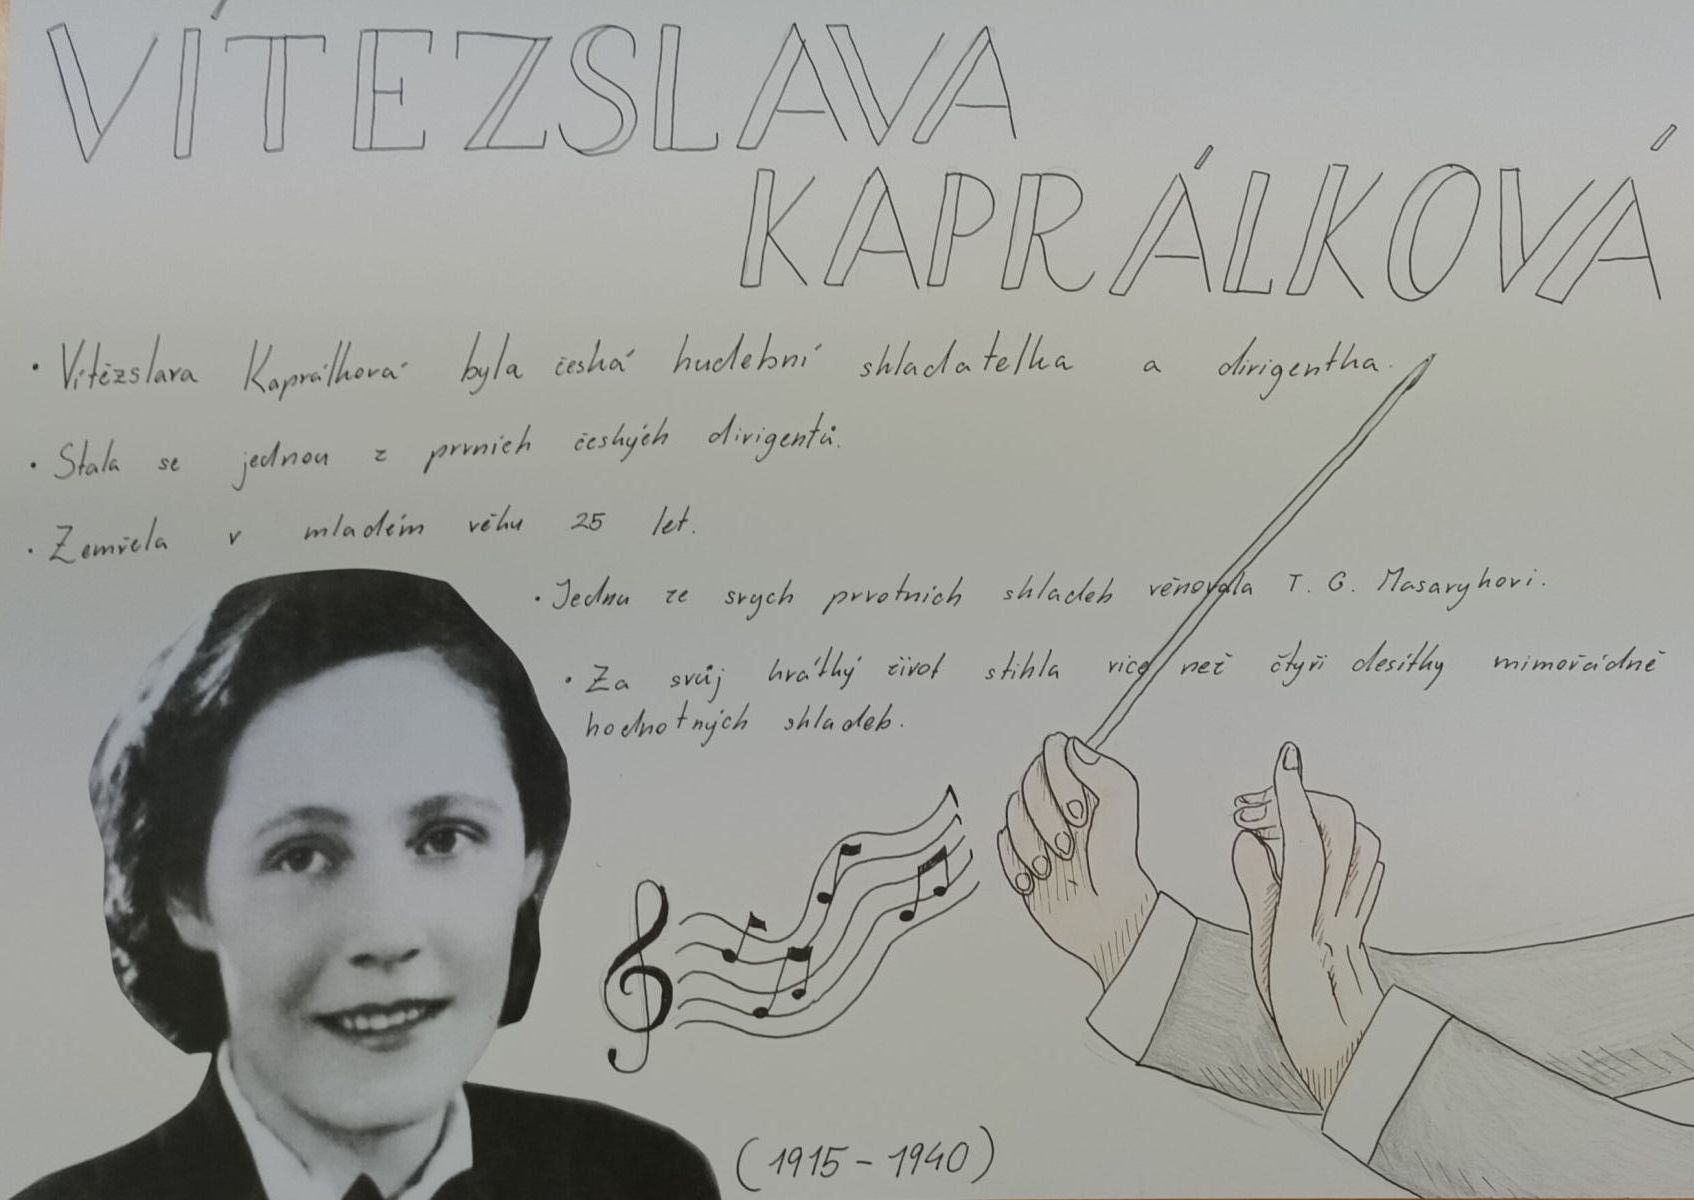 VÍTEZSLAVA
KAPRÁLKOVÁ
• Vítězslava Kaprálková byla česká hudební skladatelka a dirigentka.
• Stala se jednou z prvních českých dirigentů.
• Zemřela v mladém věku 25 let.
• Jednu ze svých prvotních skladeb věnovala T. G. Masarykovi.
• Za svůj krátký život stihla více než čtyři desítky mimořádně
hodnotných skladeb.
(1915 - 1940)